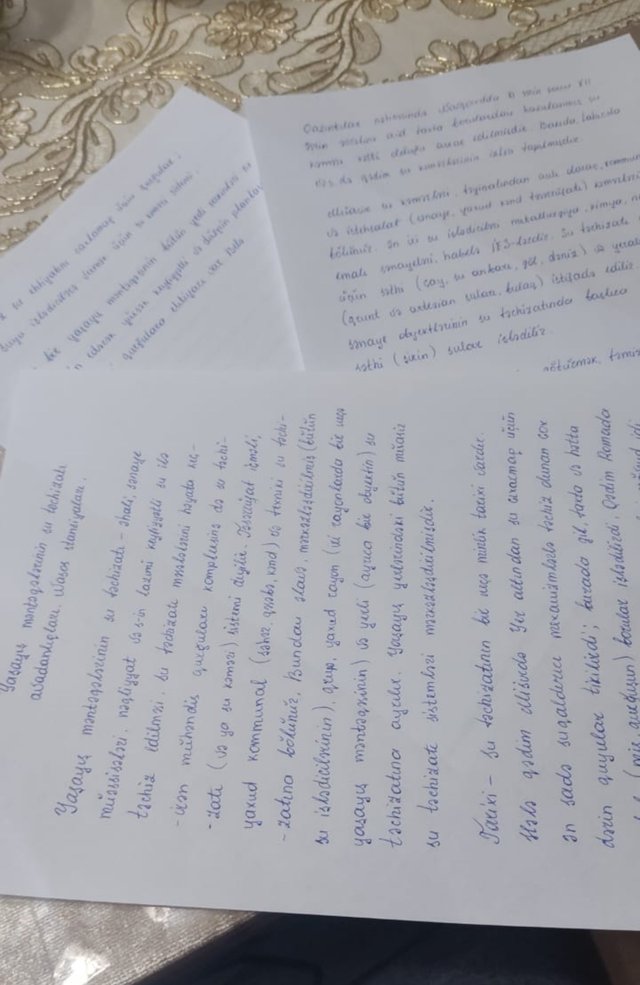 Yaşayış məntəqələrinin su təchizatı
avadanlıqları. Nasos stansiyaları.
Yaşayış məntəqələrinin su təchizatı - əhali, sənaye
müəssisələri, nəqliyyat və s-in lazımi keyfiyyətli su ilə
təchiz edilməsi. Su təchizatı məsələlərini həyata ke-
-çirən mühəndis qurğuları kompleksinə də su təchi-
-zatı (və ya su kəməri) sistemi deyilir. Təsərrüfat içməli,
yaxud kommunal (şəhər, qəsəbə, kənd) və texniki su təchi-
-zatına bölünür. Bundan əlavə, mərkəzləşdirilmiş (bütün
su işlədicilərinin), qrup, yaxud rayon (iri rayonlarda bir neçə
yaşayış məntəqəsinin) və yerli (ayrıca bir obyektin) su
təchizatına ayrılır. Yaşayış yerlərindəki bütün müasir
su təchizatı sistemləri mərkəzləşdirilmişdir.
Tarixi - su təchizatının bir neçə minlik tarixi vardır.
Hələ qədim əllərdə Yer altından su çıxarmaq üçün
ən sadə suqaldırıcı mexanizmlərlə təchiz olunan çox
dərin quyular tikilirdi; burada gil, taxta və hətta
(mis, qurğuşun) borular işlədilirdi. Qədim Romada
Qazıntılar nəticəsində Novqorodda
əsrin əvvəlinə aid taxta borulardan hazırlanmış su
kəməri xətti olduğu aşkar edilmişdir.
də qədim su kəmərlərinin izləri tapılmışdır.
Müasir su kəmərləri, təyinatından asılı olaraq, kommunal
və istehsalat (sənaye, yaxud kənd təsərrüfatı) kəmərlərinə
bölünür. Ən iri su işlədicilər metallurgiya, kimya,
emalı sənayeləri, habelə İES-lərdir. Su təchizatı
üçün səthi (çay, su anbarı, göl, dəniz) və yeraltı
(qrunt və artezian suları, bulaq) istifadə edilir.
sənaye obyektlərinin su təchizatında başlıca
səthi (şirin) sular işlədilir.
götürmək, təmiz
su ehtiyatını saxlamaq üçün qurğular;
suyu işlədicilərə vermək üçün su kəməri
bir yaşayış məntəqəsinin bütün yerli
edərək yüksək keyfiyyətli və düzgün planlaş
qurğulara ehtiyacı var.